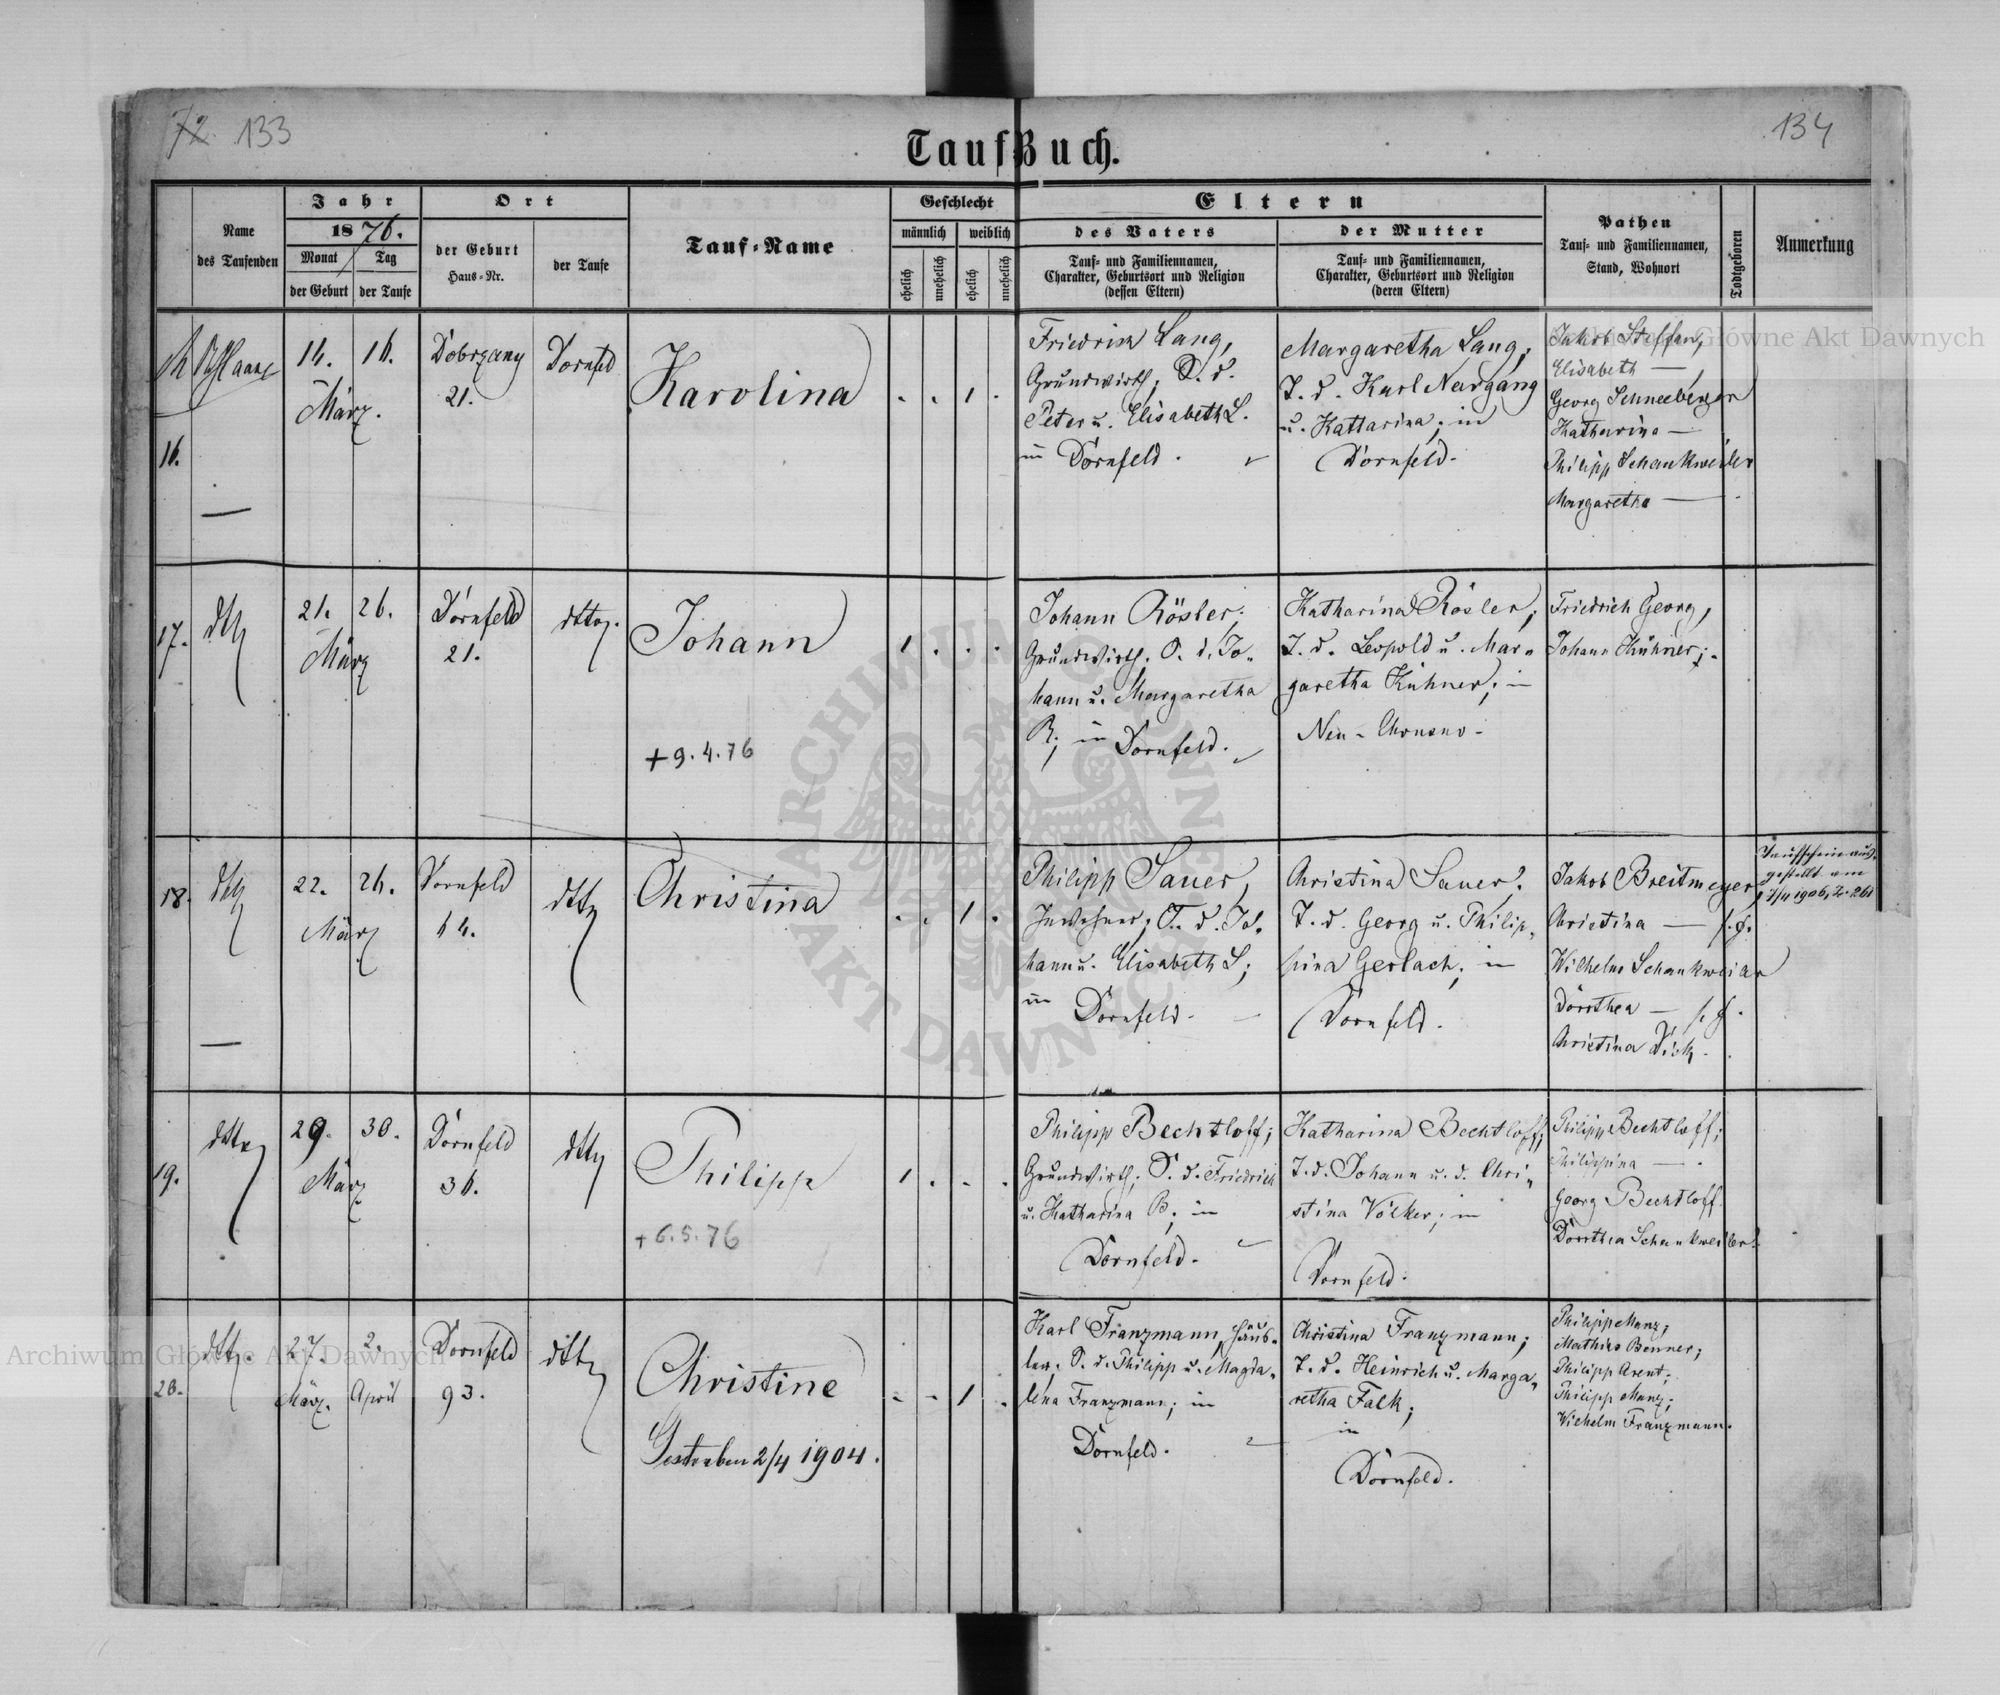 72. 133
134
Taufbuch.
Name
des Taufenden
Jahr
1876.
Monat
der Geburt
Tag
der Taufe
Ort
der Geburt
Haus-Nr.
der Taufe
Tauf-Name
Geschlecht
männlich
weiblich
ehelich
unehelich
ehelich
unehelich
Eltern
des Vaters
Tauf- und Familiennamen,
Charakter, Geburtsort und Religion
(dessen Eltern)
der Mutter
Tauf- und Familiennamen,
Charakter, Geburtsort und Religion
(deren Eltern)
Pathen
Tauf- und Familiennamen,
Stand, Wohnort
Todtgeboren
Anmerkung
16.
14.
März.
16.
Dobrzany
21.
Dornfeld
Karolina
. . 1 .
Friedrich Lang,
Grundwirth; S. d.
Peter u. Elisabeth L.
in Dornfeld.
Margaretha Lang;
T. d. Karl Nargang
u. Kattarina; in
Dornfeld.
Jakob Steffan,
Elisabeth —,
Georg Schneeberger
Katharina —
Philipp Schankweiler
Margaretha —
17.
dtto
21.
März
26.
Dornfeld
21.
dtto.
Johann
+ 9.4.76
1 . . .
Johann Rösler;
Grundwirth; S. d. Jo-
hann u. Margaretha
R; in Dornfeld.
Katharina Rösler;
T. d. Leopold u. Mar-
garetha Kühner; in
Neu-Chrusno-
Friedrich Georg,
Johann Kühner;
18.
dtto
22.
März
26.
Dornfeld
14.
dtto
Christina
. . 1 .
Philipp Sauer,
Inwohner; S. d. Jo-
hann u. Elisabeth S;
in Dornfeld.
Christina Sauer;
T. d. Georg u. Philip-
pina Gerlach; in
Dornfeld.
Jakob Breitmeyer,
Christina —
Wilhelm Schankweiler
Dorothea —
Christina Dick.
Taufschein aus-
gestellt am
19.
dtto
29.
März
30.
Dornfeld
36.
dtto
Philipp
+ 6.5.76
1 . . .
Philipp Bechtloff;
Grundwirth; S. d. Friedrich
u. Katharina B; in
Dornfeld.
Katharina Bechtloff;
T. d. Johann u. d. Chri-
stina Völker; in
Dornfeld.
Philipp Bechtloff;
Philippina —.
Georg Bechtloff
Dorothea Schankweiler
20.
dtto.
27.
März.
2.
April
Dornfeld
93.
dtto
Christine
Gestorben 2/4 1904.
- - 1 .
Karl Franzmann, Häus-
ler; S. d. Philipp u. Magda-
lena Franzmann; in
Dornfeld.
Christina Franzmann;
T. d. Heinrich u. Marga-
retha Falk;
in
Dornfeld.
Philipp Manz;
Mathias Benner;
Philipp Arent;
Philipp Manz;
Wilhelm Franzmann.
Archiwum Główne Akt Dawnych
ARCHIWUM GŁÓWNE AKT DAWNYCH
Główne Akt Dawnych